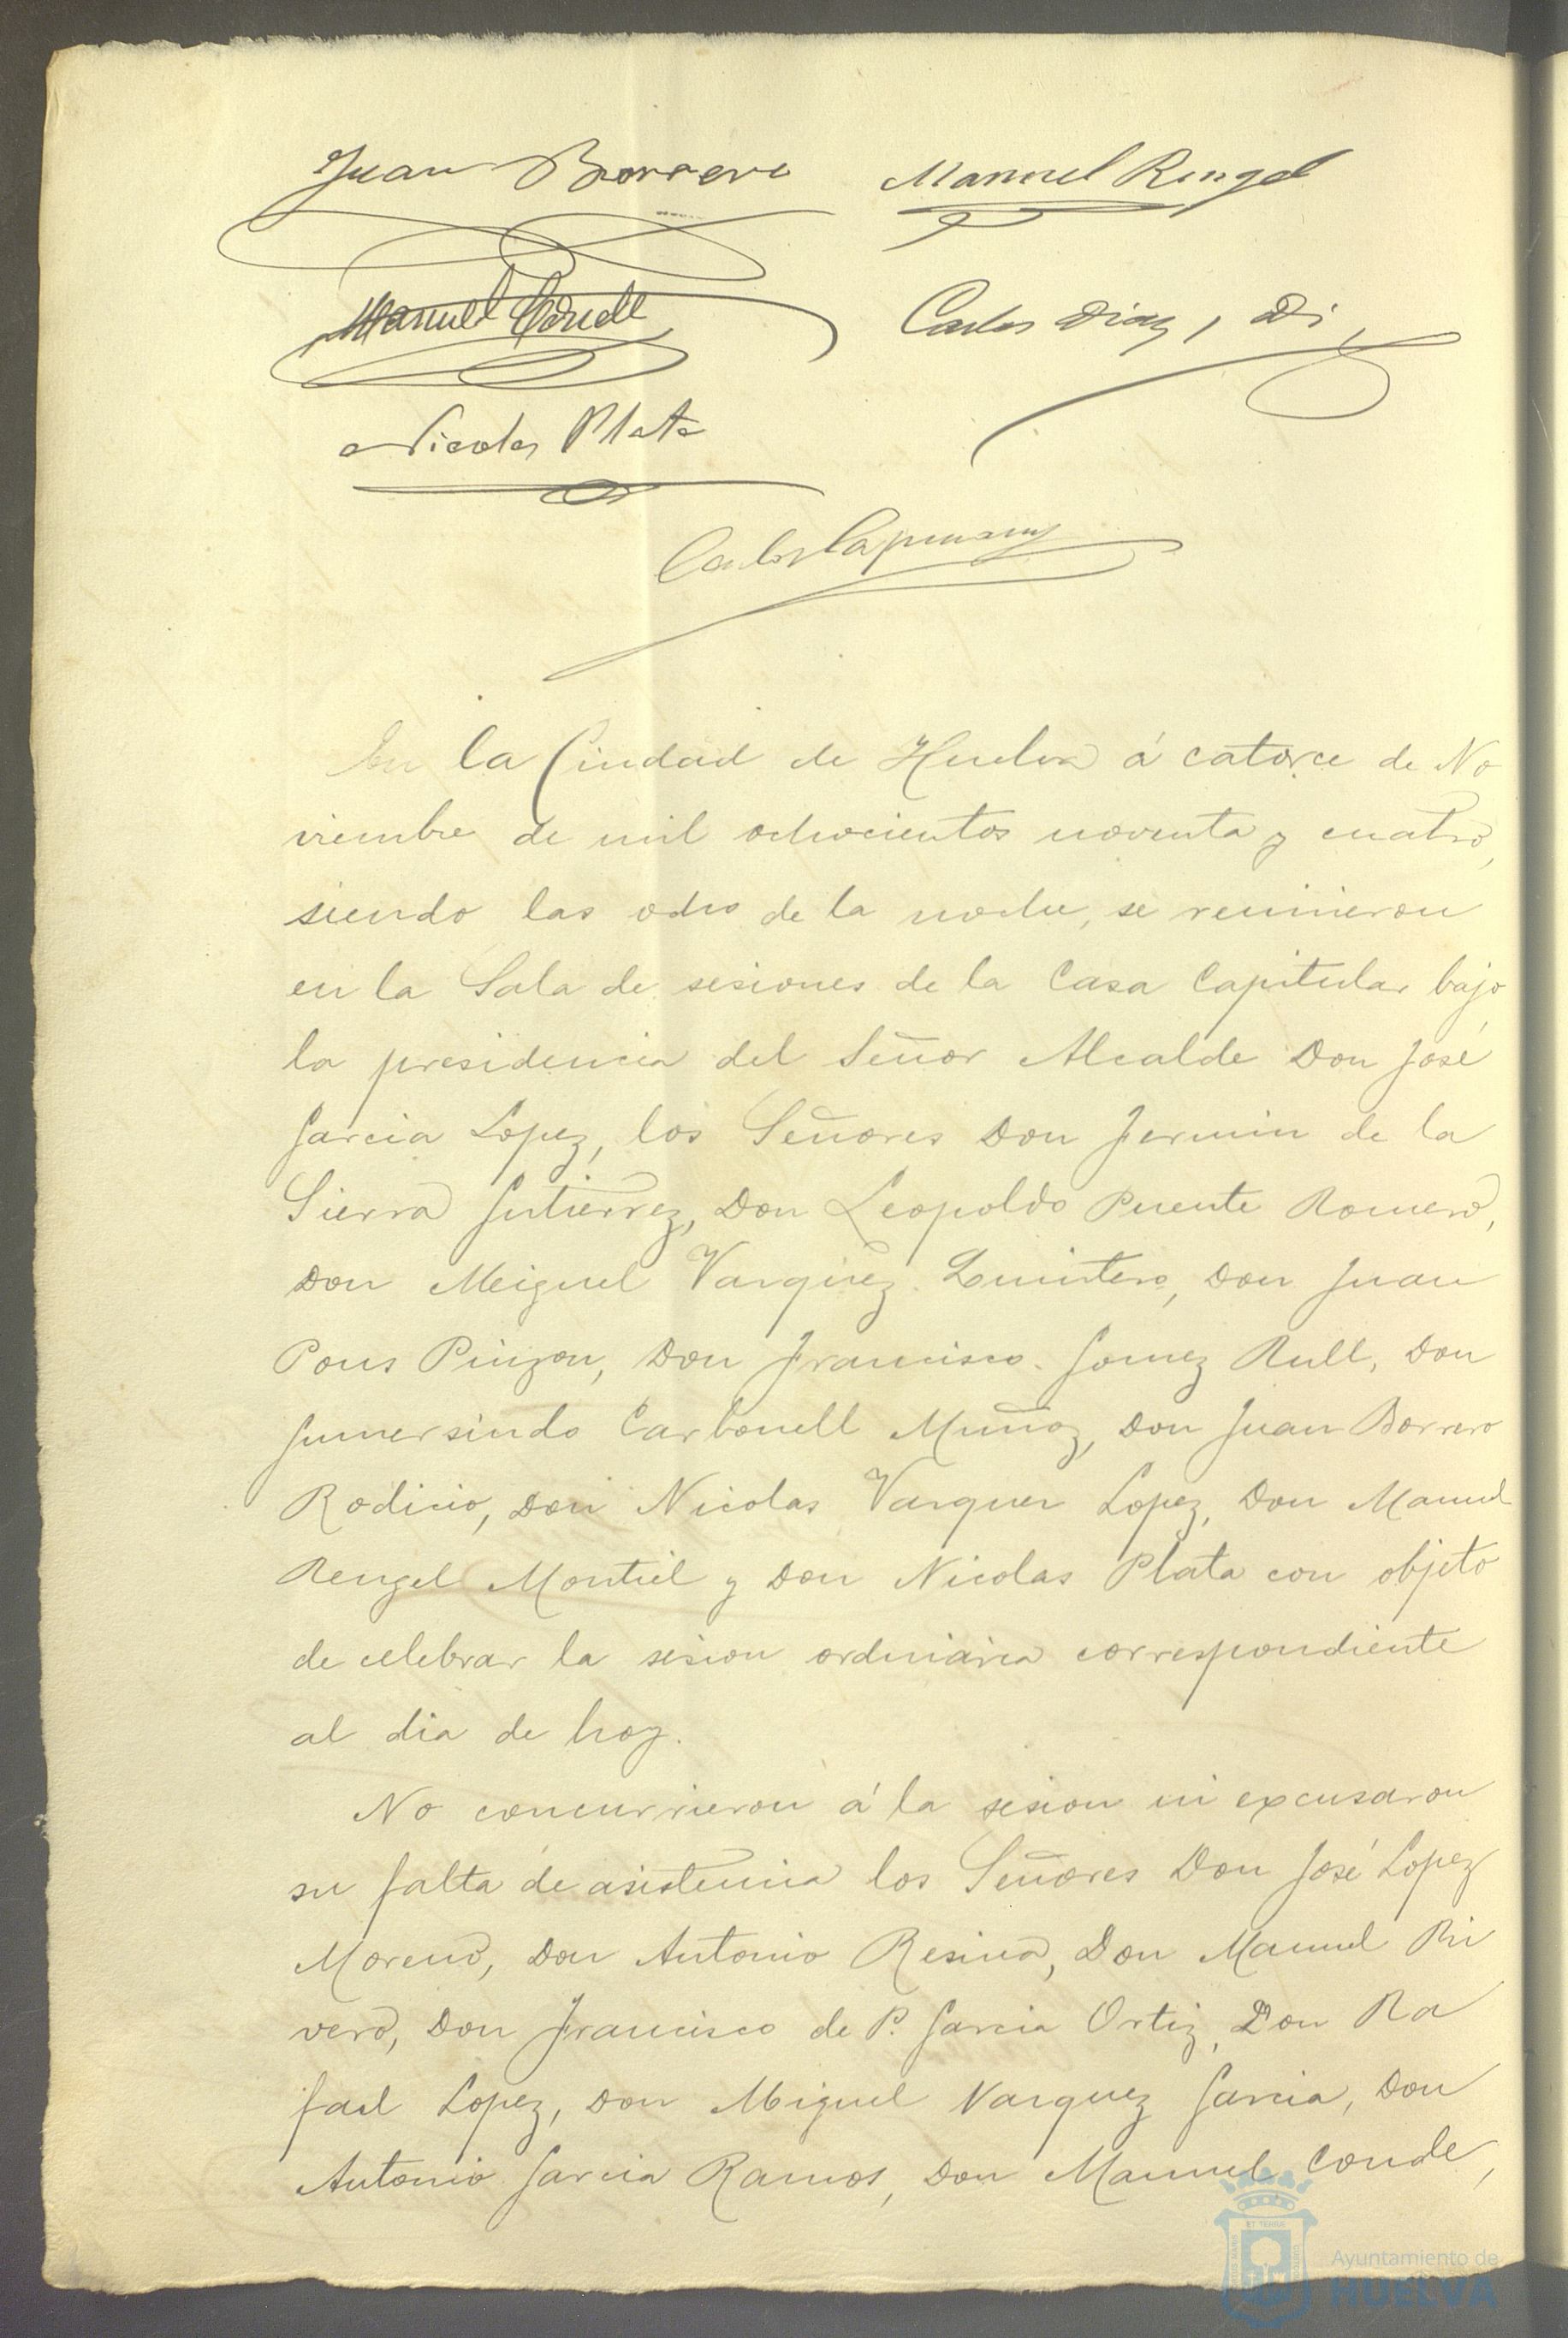 Juan Borrero Manuel Rengel
Manuel Conde Carlos Diaz y Di
Nicolas Plata
Carlos Capmany
En la Ciudad de Huelva á catorce de No
viembre de mil ochocientos noventa y cuatro,
siendo las ocho de la noche, se reunieron
en la Sala de sesiones de la Casa Capitular bajo
la presidencia del Señor Alcalde Don José
Garcia Lopez, los Señores Don Fermin de la
Sierra Gutierrez, Don Leopoldo Puente Romero,
Don Miguel Vazquez Quintero, Don Juan
Pons Pinzon, Don Francisco Gomez Rull, Don
Gumersindo Carbonell Muñoz, Don Juan Borrero
Rodicio, Don Nicolas Vazquez Lopez, Don Manuel
Rengel Montiel y Don Nicolas Plata con objeto
de celebrar la sesion ordinaria correspondiente
al dia de hoy.
No concurrieron á la sesion ni excusaron
su falta de asistencia los Señores Don José Lopez
Moreno, Don Antonio Resina, Don Manuel Ri
vero, Don Francisco de P. Garcia Ortiz, Don Ra
fael Lopez, Don Miguel Vazquez Garcia, Don
Antonio Garcia Ramos, Don Manuel Conde,
Ayuntamiento de
HUELVA